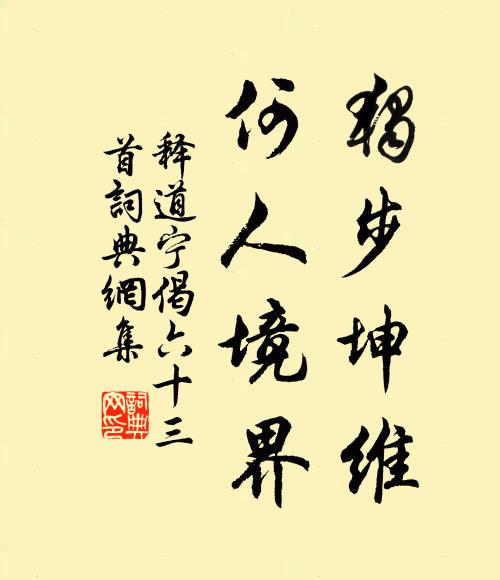 獨步坤維
何人境界
释道宁偈六十三
首詞典網集
詞典
网印